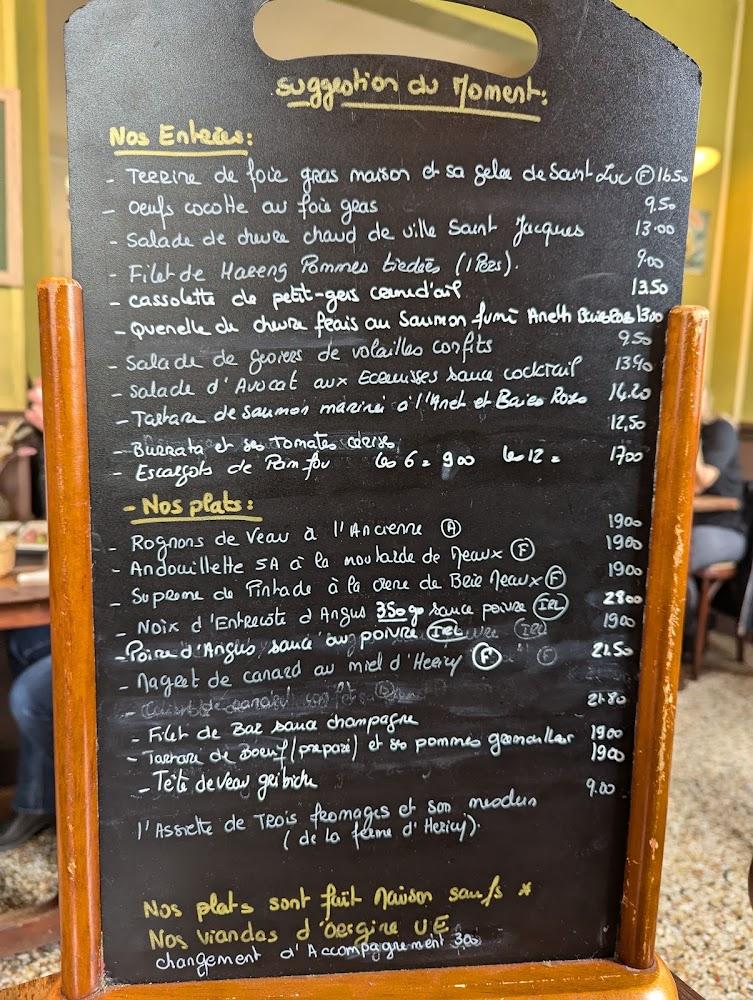 Suggestion du Moment:
Nos Entrées:
- Terrine de foie gras maison et sa gelee de Saint Luc (F) 16.50
- oeufs cocotte au foie gras 9.50
- Salade de chevre chaud de ville Saint Jacques 13.00
- Filet de Hareng Pommes tiedes (1 Pers). 9.00
- cassolette de petit-gris 13.50
- Quenelle de chevre frais au Saumon fumé Aneth 13.00
- Salade de gesiers de volailles confits 9.50
- Salade d'Avocat aux Ecrevisses sauce cocktail 13.90
- Tartare de Saumon mariné à l'Anet et Baies Rose 14.20
- Burrata et ses Tomates cerises 12,50
- Escargots de Pam fou les 6 = 900 les 12 = 1700
- Nos plats:
- Rognons de Veau à l'Ancienne (A) 1900
- Andouillette 5A à la moutarde de Meaux (F) 1900
- Supreme de Pintade à la creme de Brie Meaux (F) 1900
- Noix d'Entrecote d'Angus 350g sauce poivre (IRL) 2800
- Poire d'Angus, sauce au poivre (IRL) 1900
- Magret de canard au miel d'Hericy (F) 21.50
- Filet de Bar sauce champagne 21.80
- Tartare de Boeuf (preparé) et ses pommes grenailles 1900
- Tête de veau gribiche 1900
l'Assiette de Trois fromages et son mesclun 9.00
(de la ferme d'Hericy).
Nos plats sont fait Maison saufs *
Nos viandes d'oergine U.E
changement d'Accompagnement 3,00